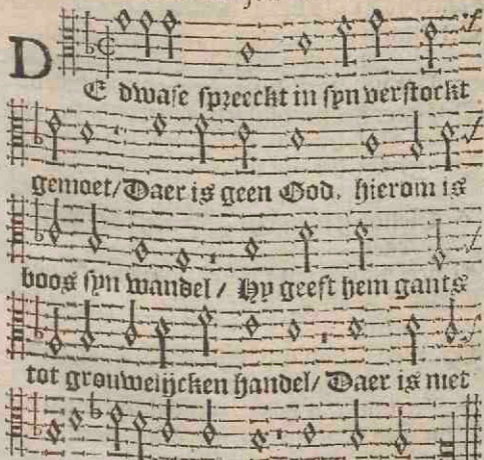 DE dwase spreeckt in syn verstockt
gemoet/ Daer is geen God. hierom is
boos syn wandel / Hy geeft hem gants
tot grouwelijcken handel/ Daer is niet